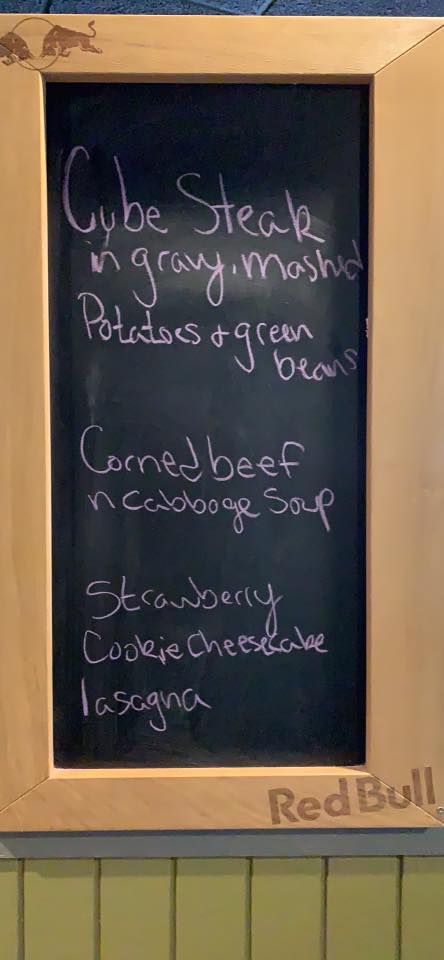 Cube Steak
in gravy, mashed
Potatoes & green
beans
Corned beef
n Cabboge Soup
Strawberry
Cookie Cheesecake
lasagna
Red Bull